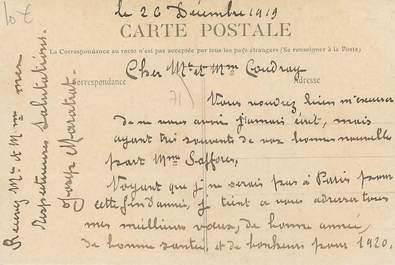 10€
le 26 Décembre 1919
CARTE POSTALE
La Correspondance au recto n'est pas acceptée par tous les pays étrangers (Se renseigner à la Poste)
Correspondance
Adresse
Cher Mr et Mme Coudray
71
Vous voudrez bien m'excuser
de ne vous avoir jamais écrit, mais
ayant très souvents de vos bonnes nouvelle
part Mme Saffores,
Voyant que je ne serais pas à Paris pour
cette fin d'année, je tient a vous adresser tous
mes meilleurs vœux, de bonne année,
de bonne santée, et de bonheurs pour 1920.
Recevez Mr et Mme mes
respectueuses salutations.
Joseph Maratrat